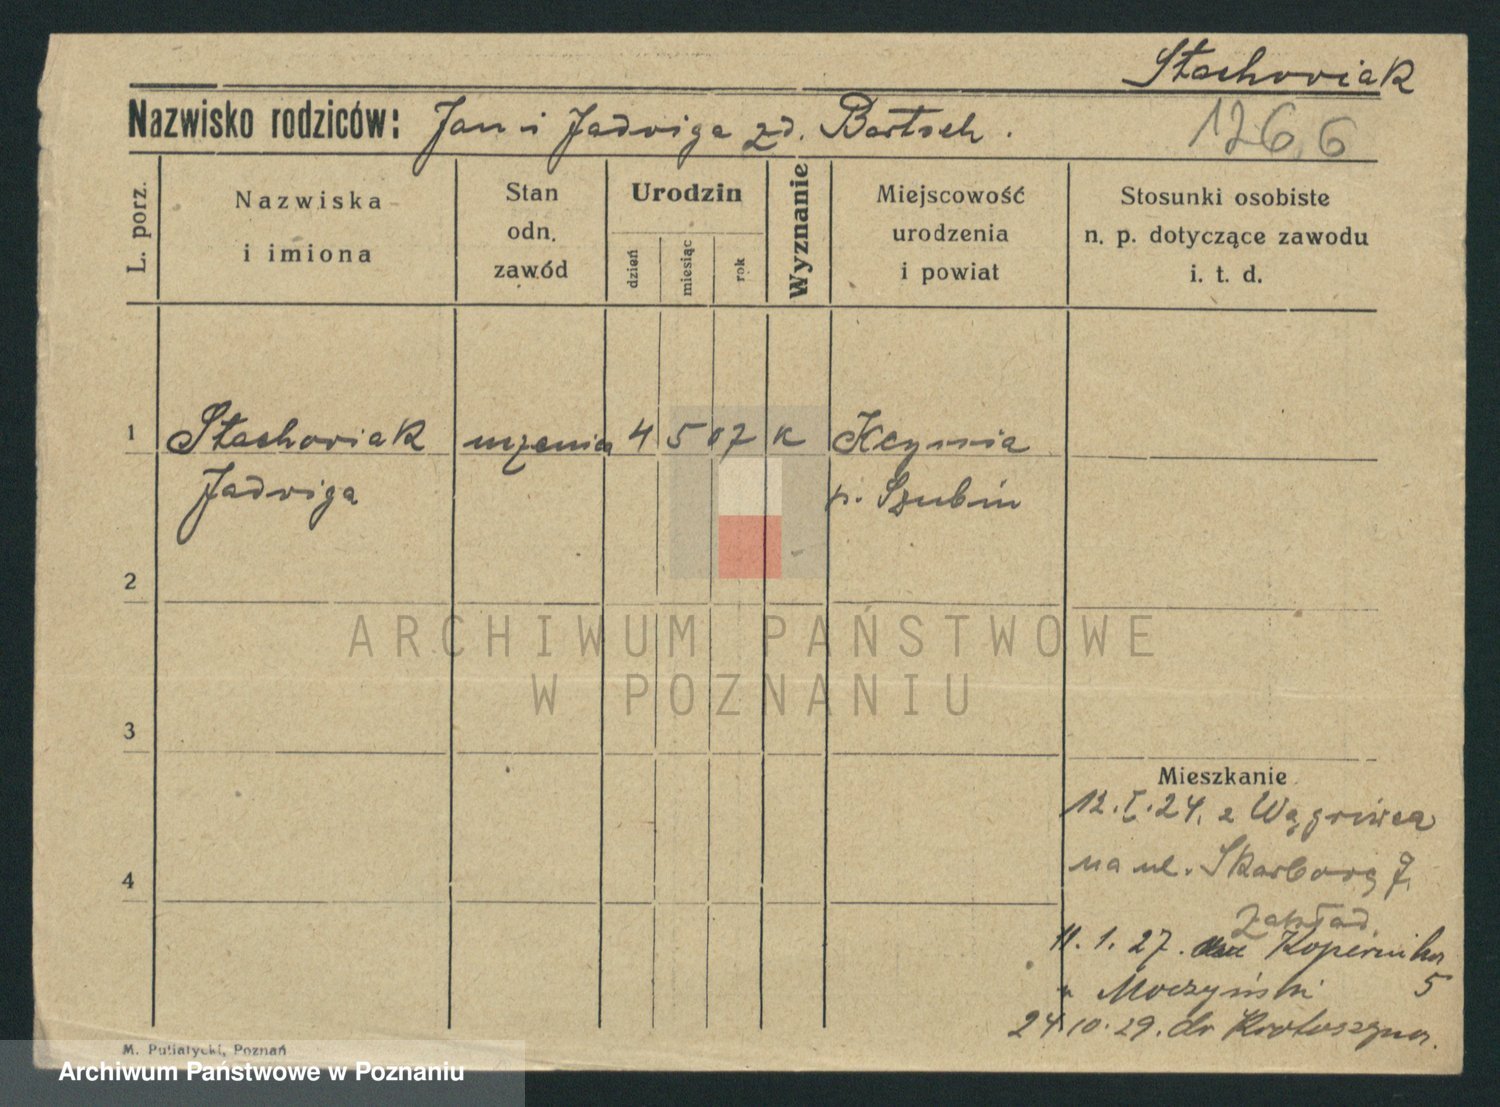 Stachowiak
Nazwisko rodziców: Jan i Jadwiga zd. Bartsch.
1266
L. porz.
Nazwiska i imiona
Stan odn. zawód
Urodzin
dzień
miesiąc
rok
Wyznanie
Miejscowość urodzenia i powiat
Stosunki osobiste n. p. dotyczące zawodu i. t. d.
1 Stachowiak uczenica 4 5 07 k Kcynia
Jadwiga p. Szubin
2
ARCHIWUM PAŃSTWOWE
W POZNANIU
3
Mieszkanie
12.I.24. z Wągrówca
na ul. Skarbową 7.
4
zakład
11.1.27. Kopernika
5
u Moczyński
24.10.29. do Krotoszyna.
M. Putiatycki, Poznań
Archiwum Państwowe w Poznaniu